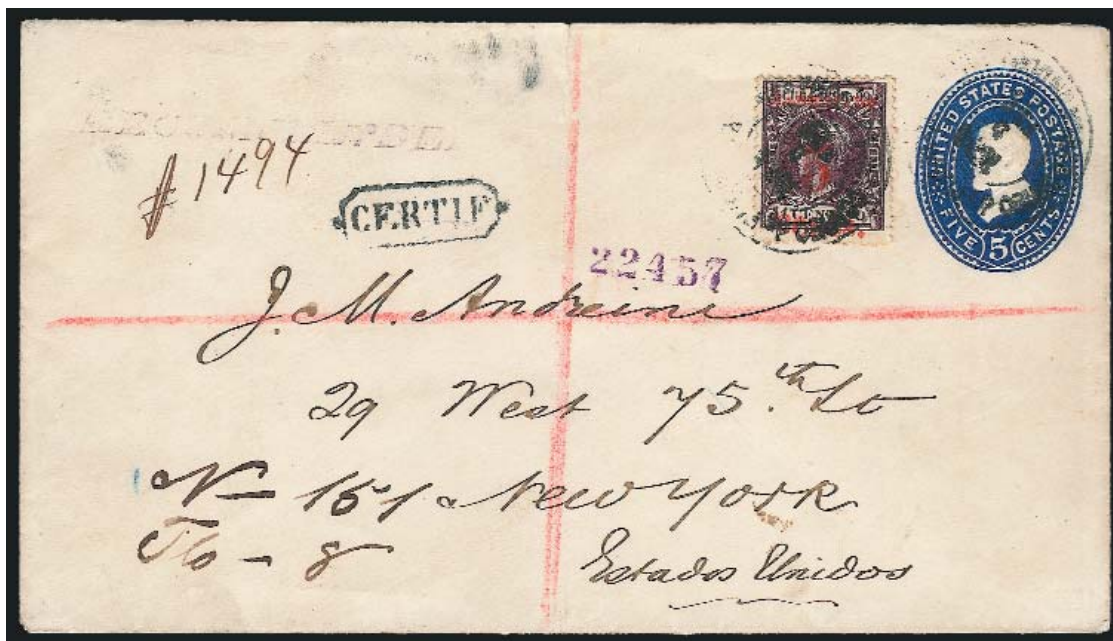 # 1494
CERTIF
UNITED STATES POSTAGE
FIVE 5 CENTS
22457
J. M. Andreini
29 West 75.th St
N— 151 New York
Flo — 8
Estados Unidos